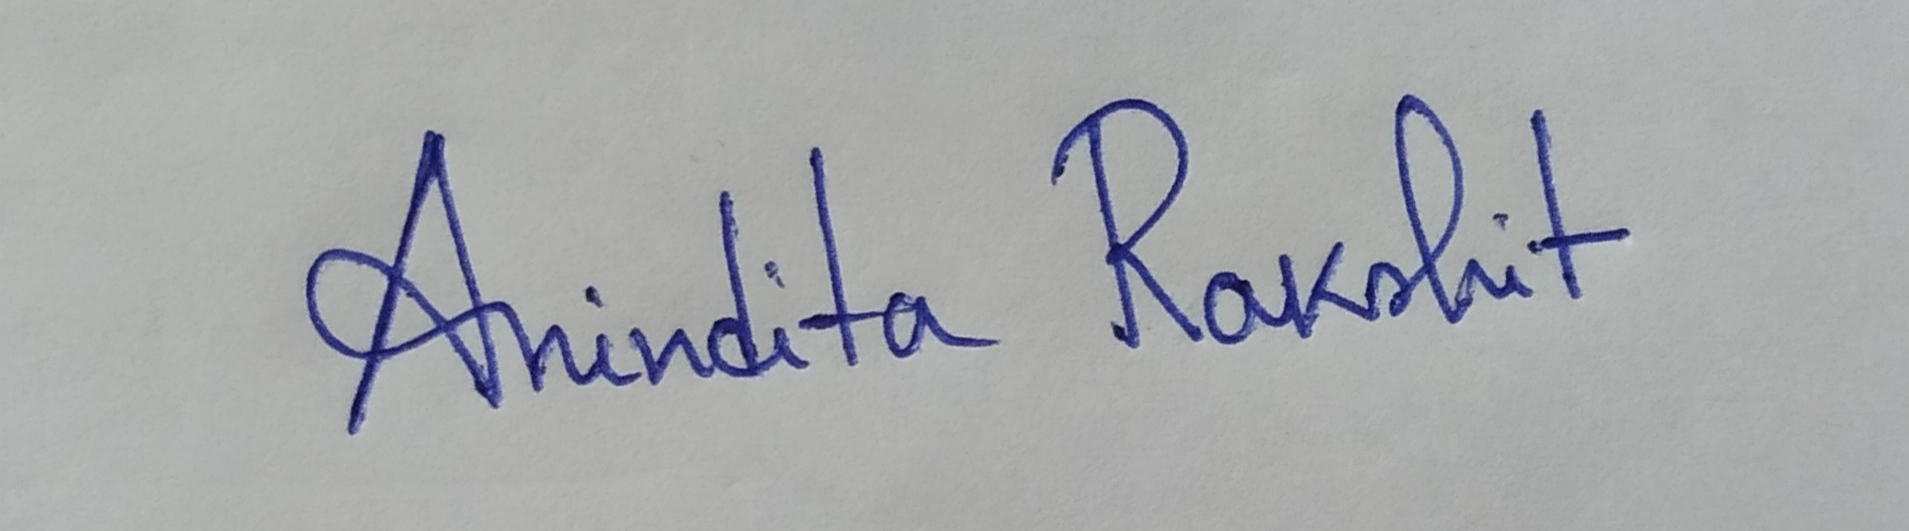 Anindita Rakshit